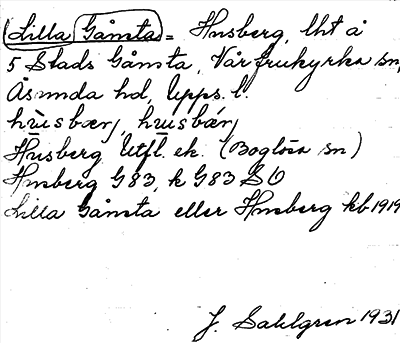 Lilla Gåmsta = Husberg, lht å
5 Stads Gåmsta, Vårfrukyrka sn,
Åsunda hd, Upps. l.
hùsbærj, hùsbǽrj
Husberg Utfl. ek. (Boglösa sn)
Husberg G83, k G83 SO
Lilla Gåmsta eller Husberg kb 1919
J. Sahlgren 1931